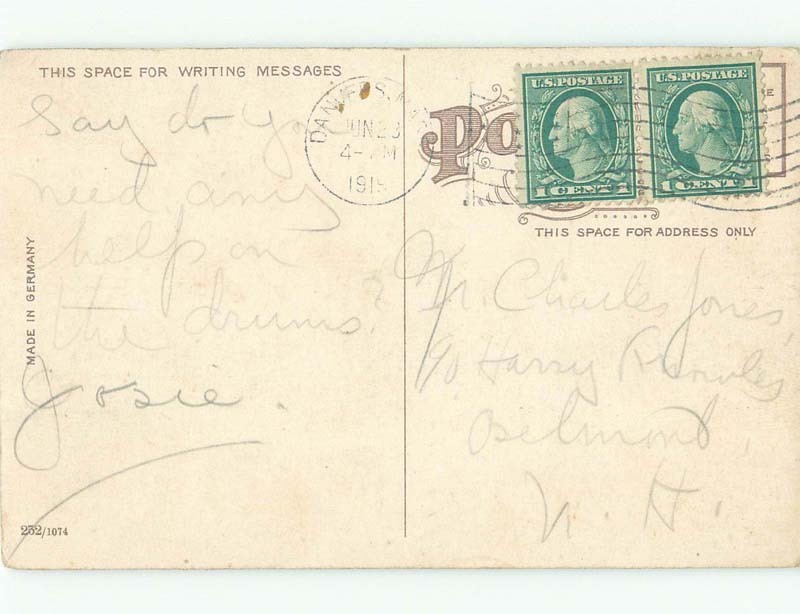 THIS SPACE FOR WRITING MESSAGES
Say do you
need any
help on
the drums?
Josie.
MADE IN GERMANY
252/1074
JUN 23
4- PM
191
U.S. POSTAGE
1 CENT 1
U.S. POSTAGE
1 CENT 1
THIS SPACE FOR ADDRESS ONLY
Mr. Charles Jones,
℅ Harry Knowles
Belmont,
N. H.